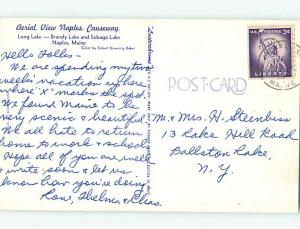 Aerial View Naples Causeway
Long Lake — Brandy Lake and Sebago Lake
Naples, Maine
Color by Robert Browning Baker
Hello Folks—
We are spending my
week's vacation where
where "X" marks the spot.
We found Maine to be
very scenic & beautiful.
We all hate to return
home to work & school.
Hope all of you are well
& write soon & let us
know how you're doing.
Love, Thelma & Chas.
POST-CARD
U.S. POSTAGE 3¢
LIBERTY
Mr. & Mrs. H. Steinbiss
13 Lake Hill Road
Ballston Lake,
N. Y.